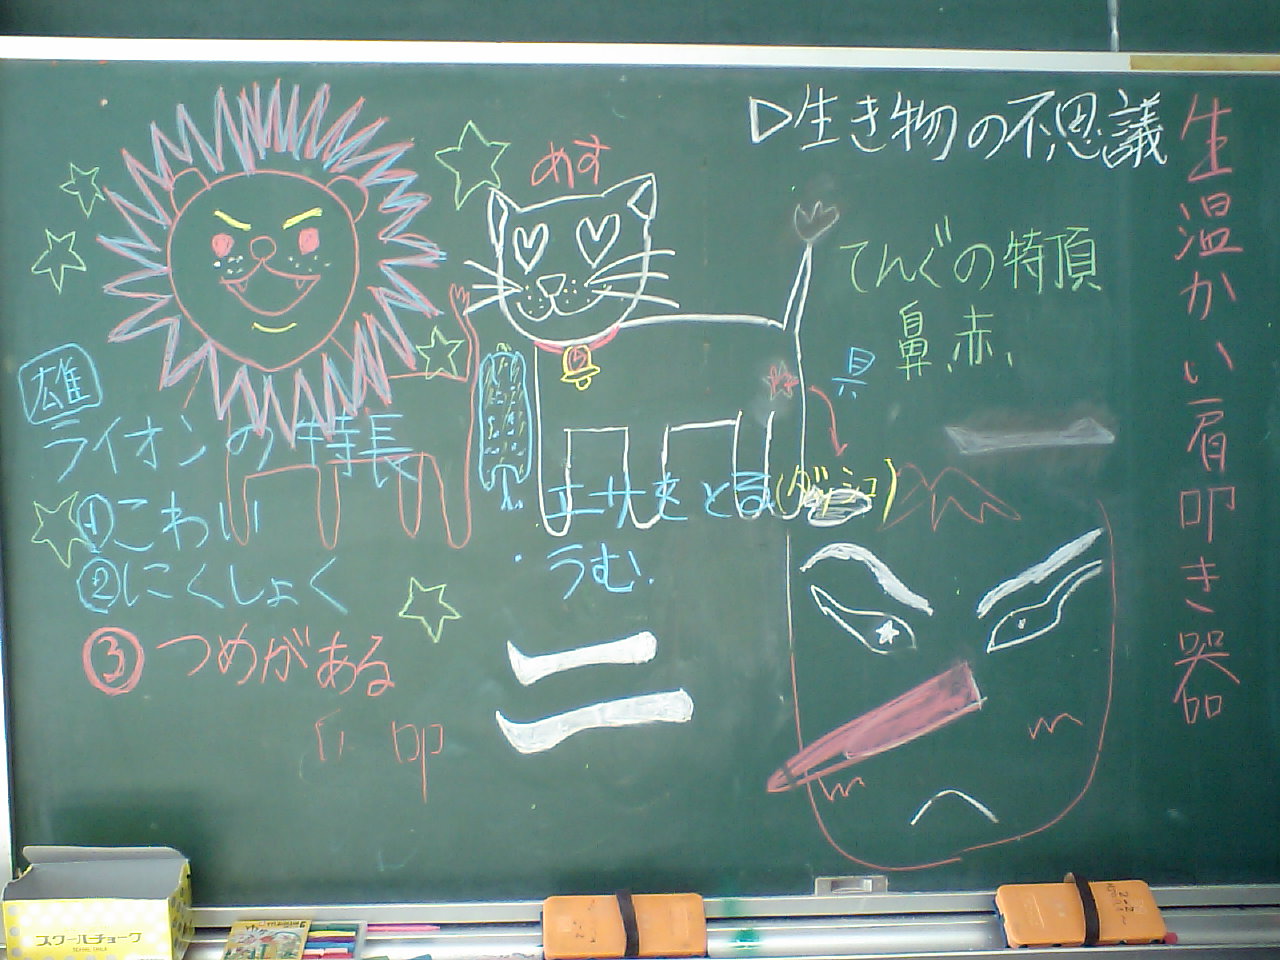 ▷生き物の不思議
生温かい肩叩き器
めす
てんぐの特頂
鼻、赤、
具
雄
ライオンの特長
①こわい
②にくしょく
③つめがある
エサをとる(ダッシュ)
・うむ.
叩
スクールチョーク